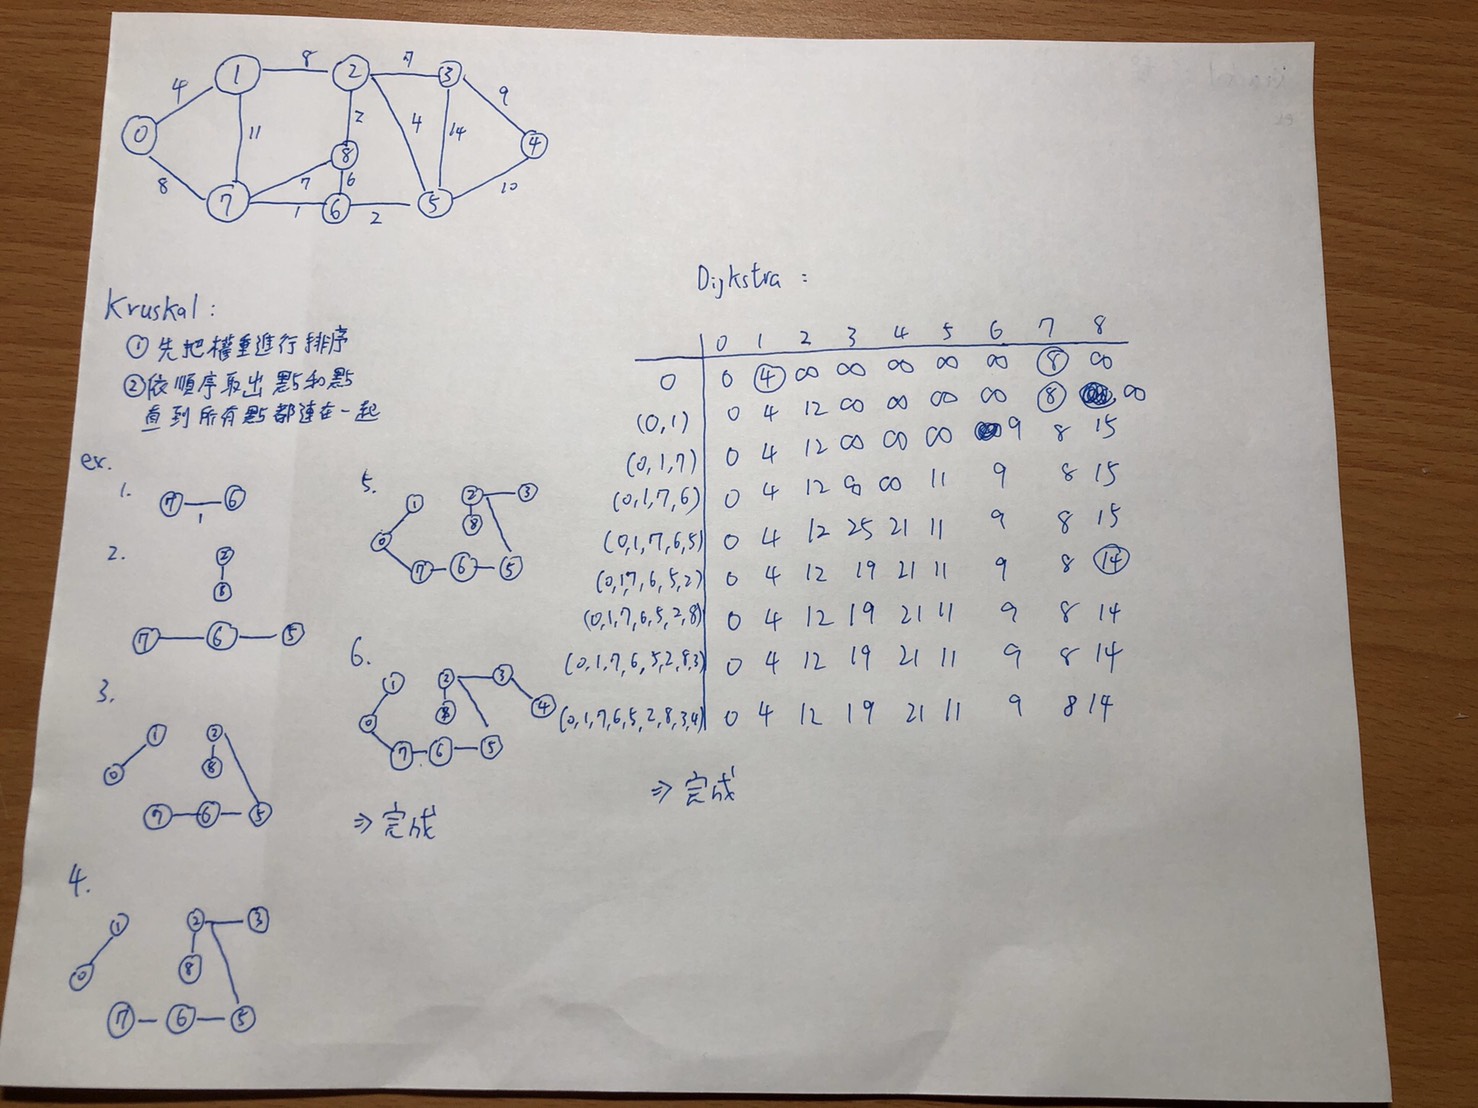 4 8 7 9
0 1 2 3 4
11 2 4 14
8 7 8 6 10
7 1 6 2 5
Kruskal:
① 先把權重進行排序
② 依順序取出點和點
直到所有點都連在一起
ex.
1.
7 6
1
2.
2
8
7 6 5
3.
1 2
0 8
7 6 5
4.
1 2 3
0 8
7 6 5
5.
1 2 3
0 8
7 6 5
6.
1 2 3
0 8 4
7 6 5
⇒ 完成
Dijkstra:
0 1 2 3 4 5 6 7 8
0 0 4 ∞ ∞ ∞ ∞ ∞ 8 ∞
(0,1) 0 4 12 ∞ ∞ ∞ ∞ 8 ∞
(0,1,7) 0 4 12 ∞ ∞ ∞ 9 8 15
(0,1,7,6) 0 4 12 ∞ ∞ 11 9 8 15
(0,1,7,6,5) 0 4 12 25 21 11 9 8 15
(0,1,7,6,5,2) 0 4 12 19 21 11 9 8 14
(0,1,7,6,5,2,8) 0 4 12 19 21 11 9 8 14
(0,1,7,6,5,2,8,3) 0 4 12 19 21 11 9 8 14
(0,1,7,6,5,2,8,3,4) 0 4 12 19 21 11 9 8 14
⇒ 完成